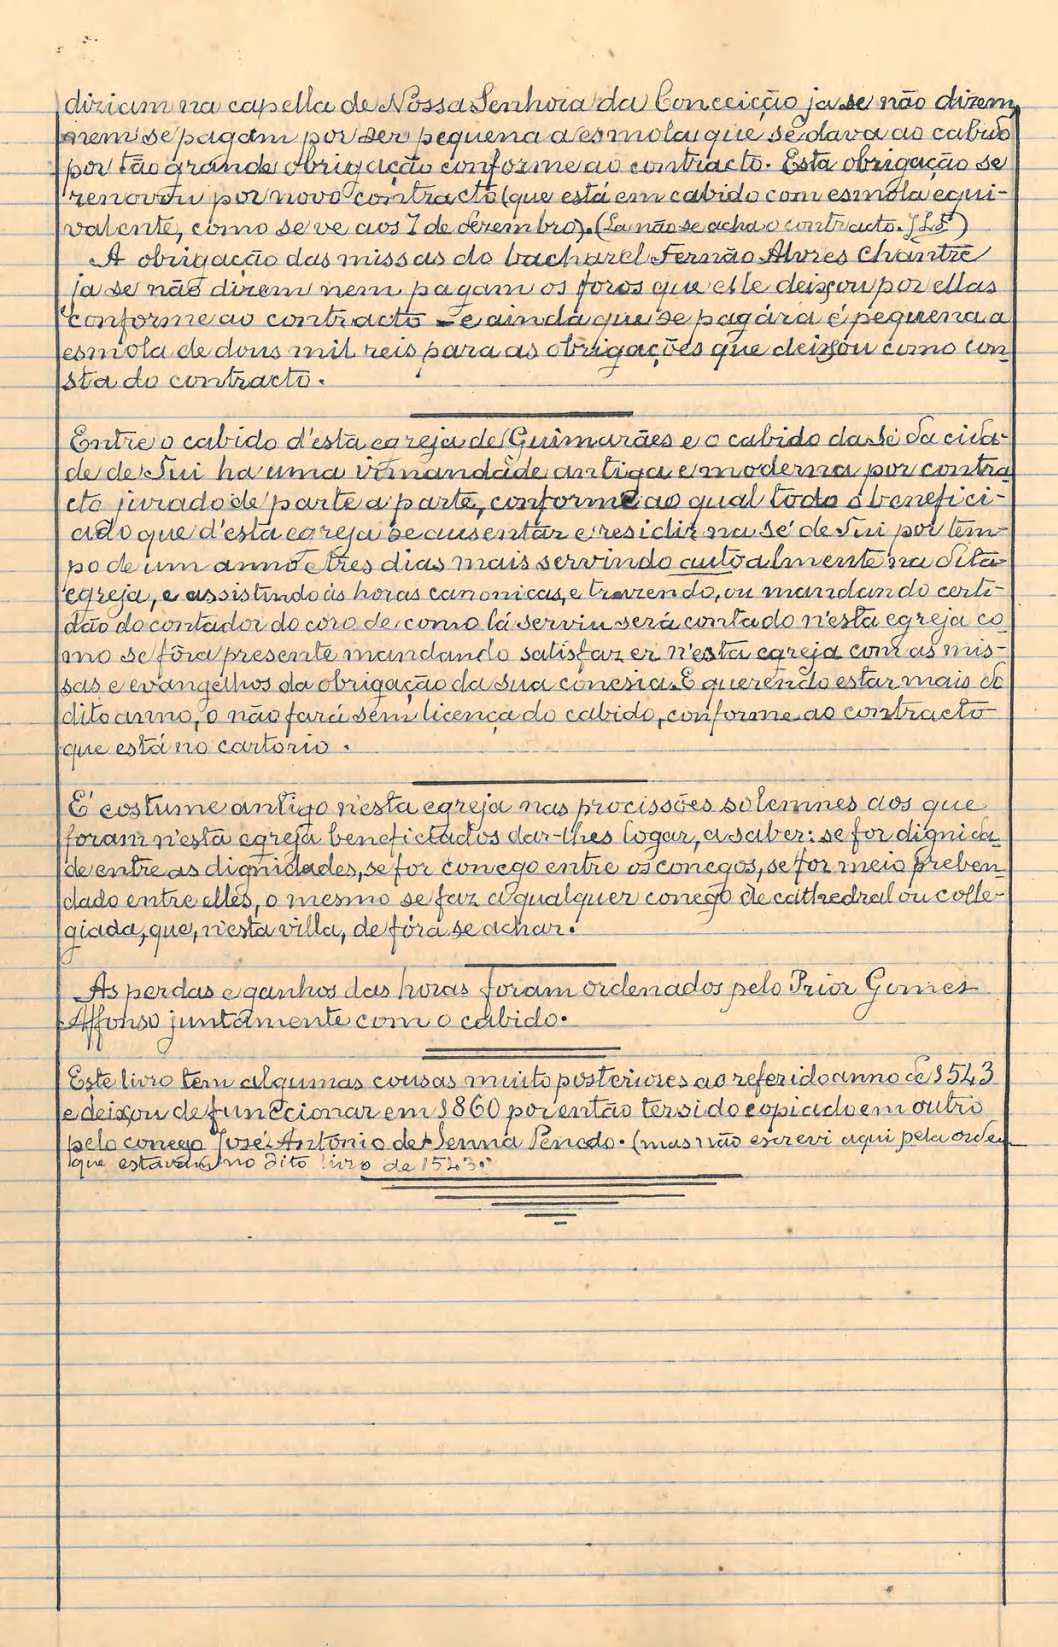 diziam na capella de Nossa Senhora da Conceição ja se não dizem,
nem se pagam por ser pequena a esmola que se dava ao cabido
por tão grande obrigação conforme ao contracto. Esta obrigação se
renovou por novo contracto (que está em cabido com esmola equi-
valente, como se ve aos 7 de dezembro). (La não se acha o contracto. J L F)
A obrigação das missas do bacharel Fernão Alvres Chantre
ja se não dizem nem pagam os foros que elle deixou por ellas
conforme ao contracto - e ainda que se pagára é pequena a
esmola de dous mil reis para as obrigações que deixou como con-
sta do contracto.
Entre o cabido d'esta egreja de Guimarães e o cabido da Sé da cida-
de de Tui ha uma irmandade antiga e moderna por contra
cto jurado de parte a parte, conforme ao qual todo o benefici-
ado que d'esta egreja se ausentar e residir na sé de Tui por tem-
po de um anno e tres dias mais servindo autoalmente na dita
egreja, e assistindo ás horas canonicas, e trazendo, ou mandando certi-
dão do contador do coro de como lá serviu será contado n'esta egreja co-
mo se fôra presente mandando satisfazer n'esta egreja com as mis-
sas e evangelhos da obrigação da sua conesia. E querendo estar mais do
dito anno, o não fará sem licença do cabido, conforme ao contracto
que está no cartorio.
É costume antigo n'esta egreja nas procissões solemnes aos que
foram n'esta egreja beneficiados dar-lhes logar, a saber: se for dignida-
de entre as dignidades, se for conego entre os conegos, se for meio preben-
dado entre elles, o mesmo se faz a qualquer conego de cathedral ou colle-
giada, que, n'esta villa, de fóra se achar.
As perdas e ganhos das horas foram ordenados pelo Prior Gomes
Affonso juntamente com o cabido.
Este livro tem algumas cousas muito posteriores ao referido anno de 1543
e deixou de funccionar em 1860 por então ter sido copiado em outro
pelo conego José Antonio de Senna Penedo. (mas não escrevi aqui pela ordem
que estavam no dito livro de 1543.